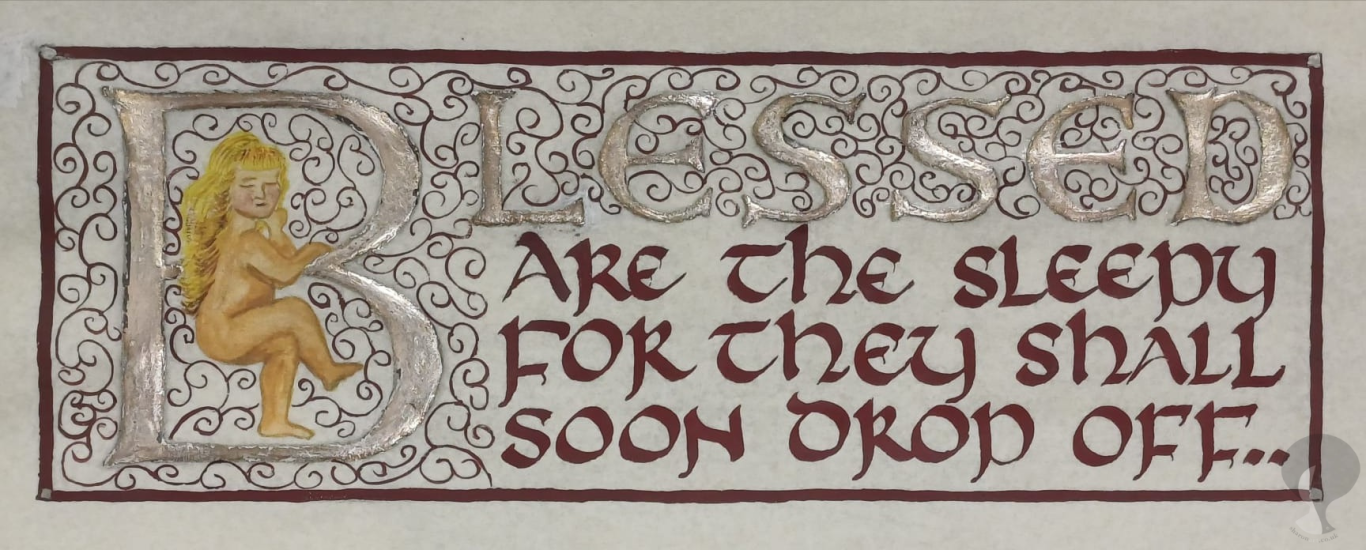 BLESSED
ARE the SLEEPY
FOR they shALL
SOON DROP OFF..